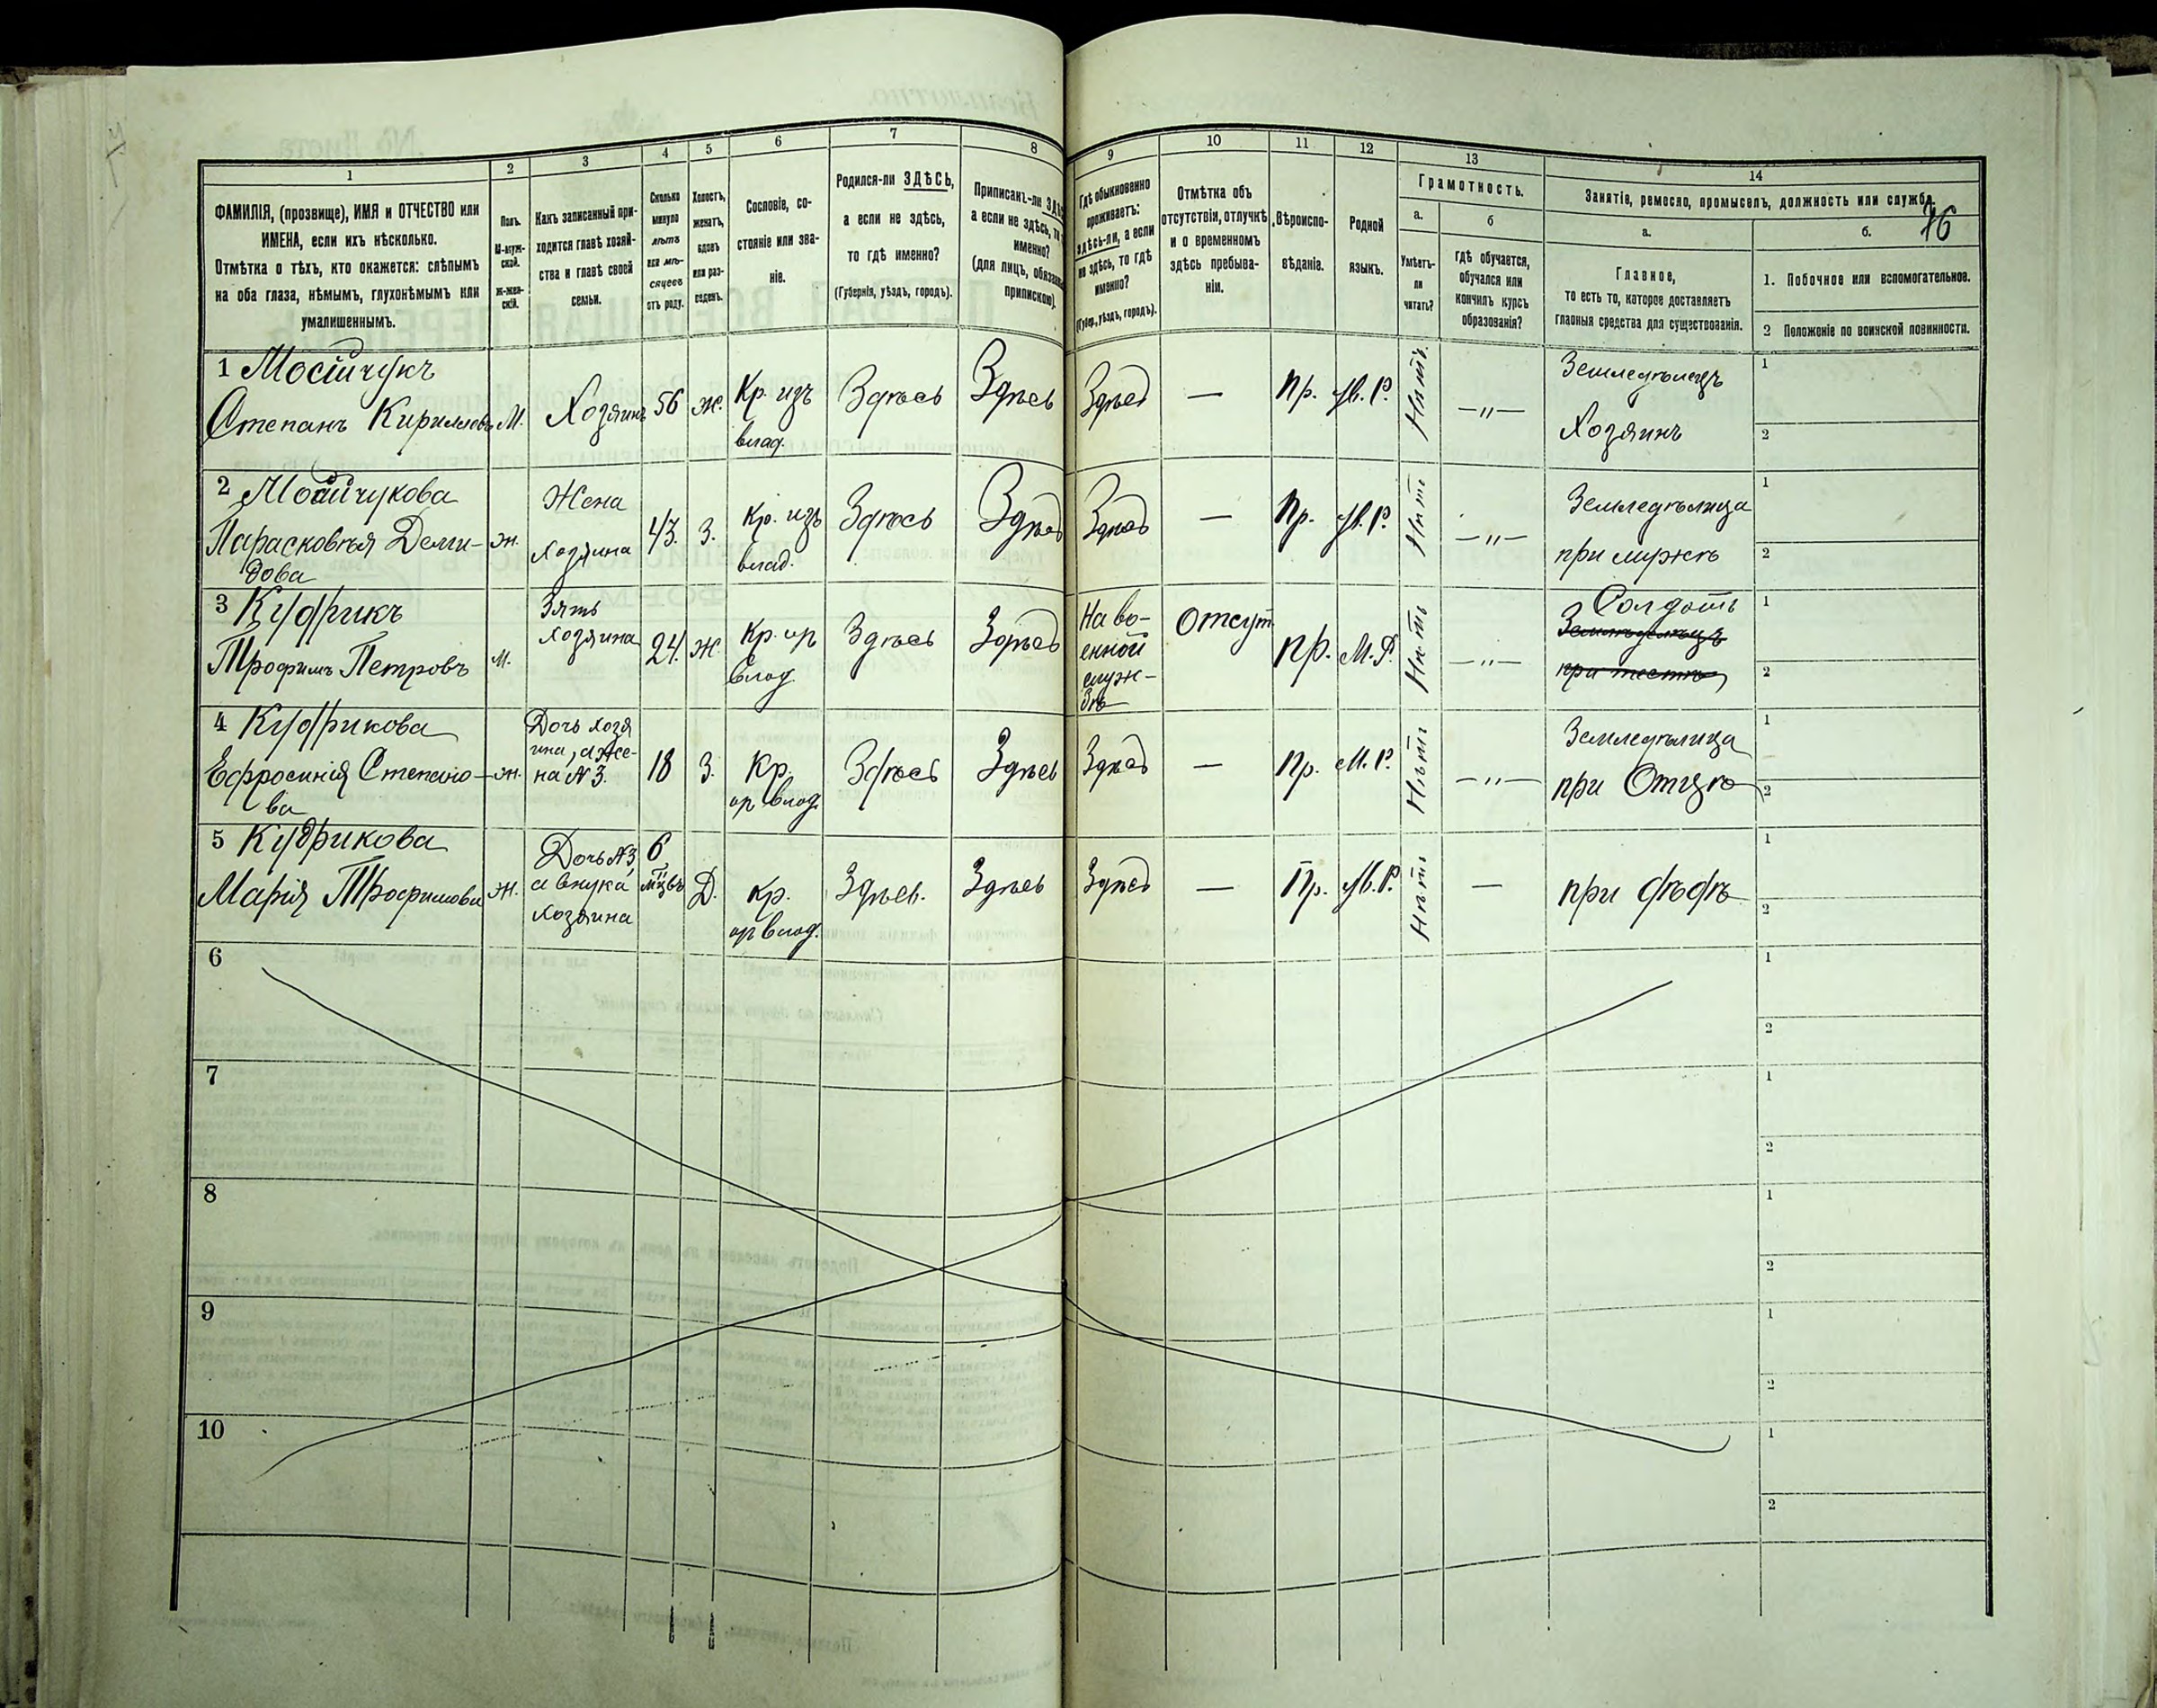 76
1
ФАМИЛІЯ, (прозвище), ИМЯ и ОТЧЕСТВО или
ИМЕНА, если ихъ нѣсколько.
Отмѣтка о тѣхъ, кто окажется: слѣпымъ
на оба глаза, нѣмымъ, глухонѣмымъ или
умалишеннымъ.
2
Полъ.
М-муж-
ской.
Ж-жен-
скій.
3
Какъ записанный при-
ходится главѣ хозяй-
ства и главѣ своей
семьи.
4
Сколько
минуло
лѣтъ
или мѣ-
сяцевъ
отъ роду.
5
Холостъ,
женатъ,
вдовъ
или раз-
веденъ.
6
Сословіе, со-
стояніе или зва-
ніе.
7
Родился-ли ЗДѢСЬ,
а если не здѣсь,
то гдѣ именно?
(Губернія, уѣздъ, городъ).
8
Приписанъ-ли
а если не здѣсь, то
именно?
(для лицъ,
припискою).
9
Гдѣ обыкновенно
проживаетъ:
здѣсь-ли, а если
не здѣсь, то гдѣ
именно?
(Губер., уѣздъ, городъ).
10
Отмѣтка объ
отсутствіи, отлучкѣ
и о временномъ
здѣсь пребыва-
ніи.
11
Вѣроиспо-
вѣданіе.
12
Родной
языкъ.
13
Грамотность.
а.
Умѣетъ-
ли
читать?
б
гдѣ обучается,
обучался или
кончилъ курсъ
образованія?
14
Занятіе, ремесло, промыселъ, должность или служба.
а.
Главное,
то есть то, которое доставляетъ
главныя средства для существованія.
б.
1. Побочное или вспомогательное.
2 Положеніе по воинской повинности.
1 Мосійчукъ
Степанъ Кирилловъ
М.
Хозяинъ
56
ж.
Кр. изъ
влад.
Здѣсь
Здѣсь
Здѣсь
—
Пр.
М. Р.
Нѣтъ.
—"—
Земледѣлецъ
Хозяинъ
1
2
2 Мосійчукова
Парасковѣя Деми-
дова
ж.
Жена
Хозяина
43.
З.
Кр. изъ
влад.
Здѣсь
Здѣсь
Здѣсь
—
Пр.
М. Р.
Нѣтъ
—"—
Земледѣлица
при мужѣ
1
2
3 Кудрикъ
Трофимъ Петровъ
М.
Зять
хозяина
24.
Ж
Кр. из
влад
Здѣсь
Здѣсь
На во-
енной
служ-
бѣ
Отсут.
пр.
М. Р.
Нѣтъ
—"—
Солдатъ
Земледѣлецъ
при тестѣ
1
2
4 Кудрикова
Ефросинія Степано-
ва
ж.
Дочь хозя
ина, а Же-
на N 3.
18
З.
Кр.
из влад.
Здѣсь
Здѣсь
Здѣсь
—
Пр.
М. Р.
Нѣтъ
—"—
Земледѣлица
при Отцѣ
1
2
5 Кудрикова
Марія Трофимова
Ж.
Дочь N 3,
а внука
хозяина
6
мцвъ
Д.
кр.
из влад.
Здѣсь.
Здѣсь
Здѣсь
—
Пр.
М. Р.
Нѣтъ
—
при дѣдѣ
1
2
6
1
2
7
1
2
8
1
2
9
1
2
10
1
2